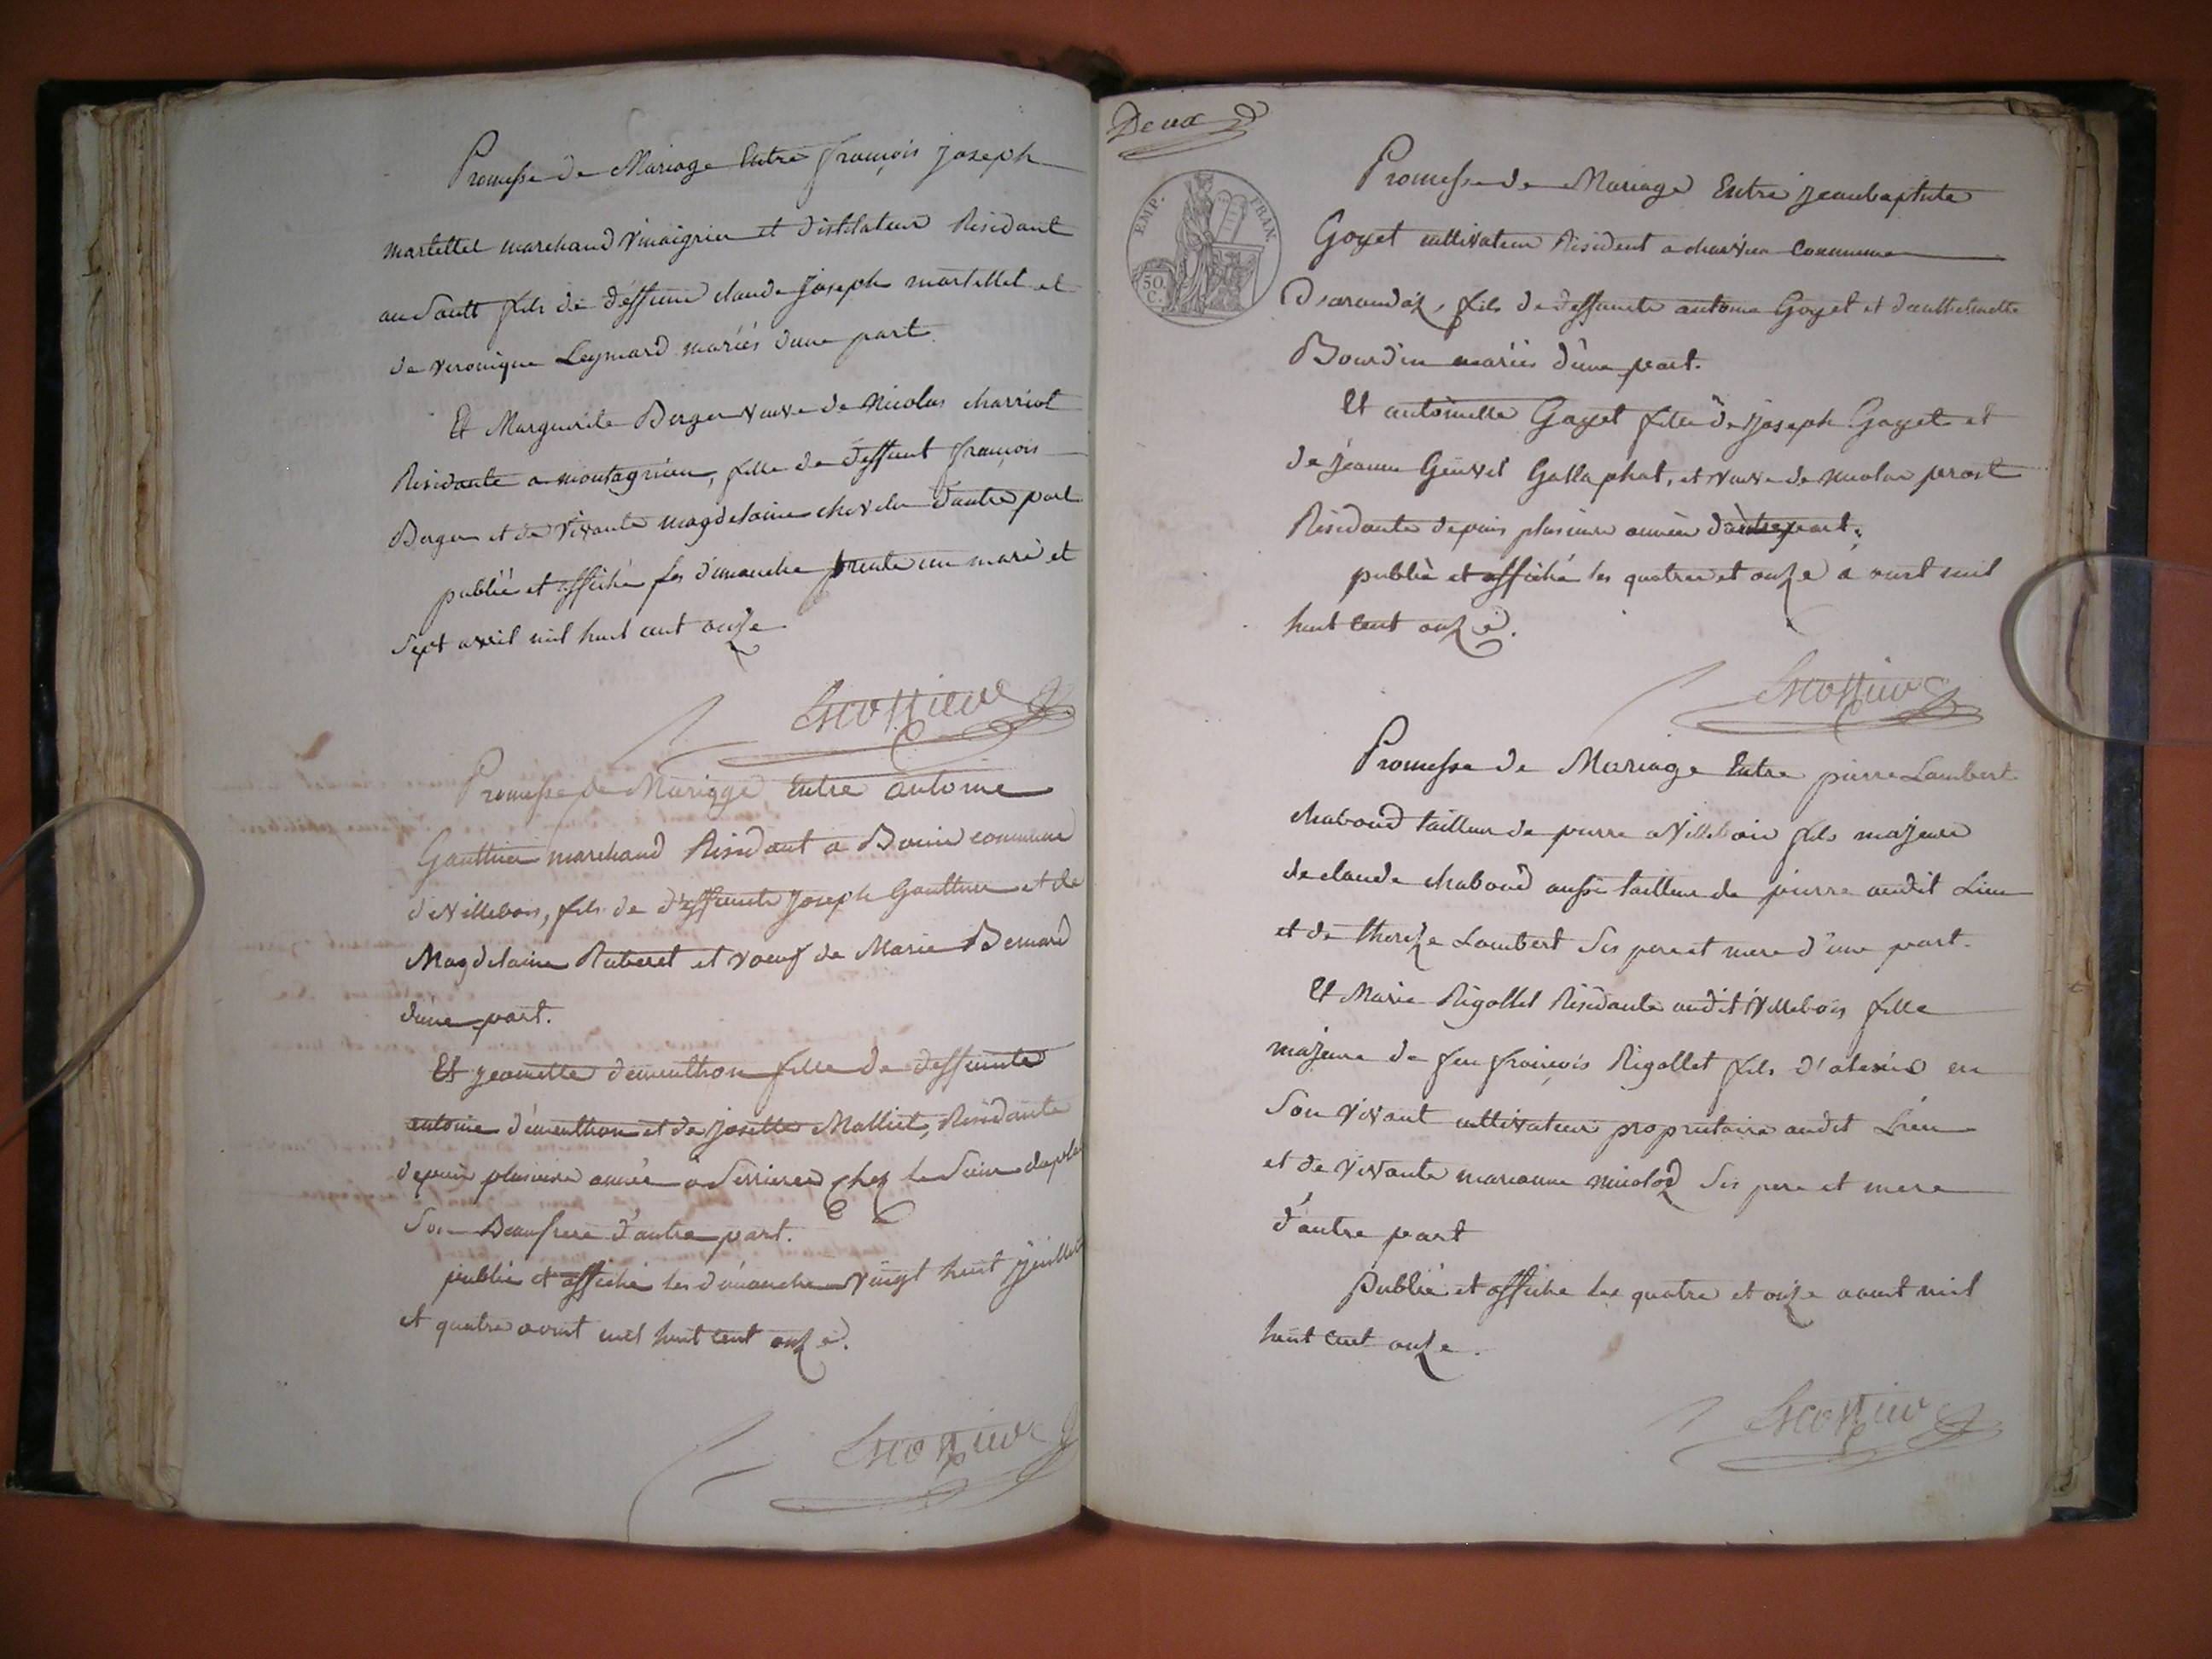 Promesse de Mariage Entre françois joseph
martellet marchand vinaigrier et distilateur Residant
au Sault fils de deffunt claude joseph martellet et
de veronique Leymard mariés dune part
Et Marguerite Berger veuve de Nicolas charriot
Residante a montagnieu, fille de deffunt françois
Berger et de vivante magdelaine d'autre part
publié et affiché les dimanche trente un mars et
Sept avril mil huit cent onze
Promesse de Mariage Entre antoine
Gauthier marchand Residant a Bouis commune
de Villebois, fils de deffunts joseph Gauthier et de
Magdelaine Ruberet et voeuf de Marie Bernard
d'une part.
Et jeanette dementhon fille de deffunts
antoine dementhon et de josette Malliet, Residante
depuis plusieurs année a Serrieres chez le Sieur
Son Beaufrere d'autre part.
publié et affiché les dimanche vingt huit juillet
et quatre aout mil huit cent onze.
Deux
EMP. FRAN.
50 C.
Promesse de Mariage Entre jeanbaptiste
Goyet cultivateur Resident a commune
D'arandaz, fils de deffunts antoine Goyet et
Bourdin mariés d'une part.
Et antoinette Goyet fille de joseph Goyet et
de jeanne Gallaphat, et veuve de nicolas prost
Residante depuis plusieurs année d'autrepart.
publié et affiché les quatres et onze aoust mil
huit cent onze.
Promesse de Mariage Entre pierre Lambert
chaboud tailleur de pierre a Villebois fils majeur
de claude chaboud aussi tailleur de pierre audit Lieu
et de thereze Lambert Ses pere et mere d'une part.
Et Marie Rigollet Residante audit Villebois fille
majeure de feu françois Rigollet fils d'alexis en
Son vivant cultivateur proprietaire audit Lieu
et de vivante marianne nicolod Ses pere et mere
d'autre part
Publié et affiche les quatre et onze aoust mil
huit cent onze.